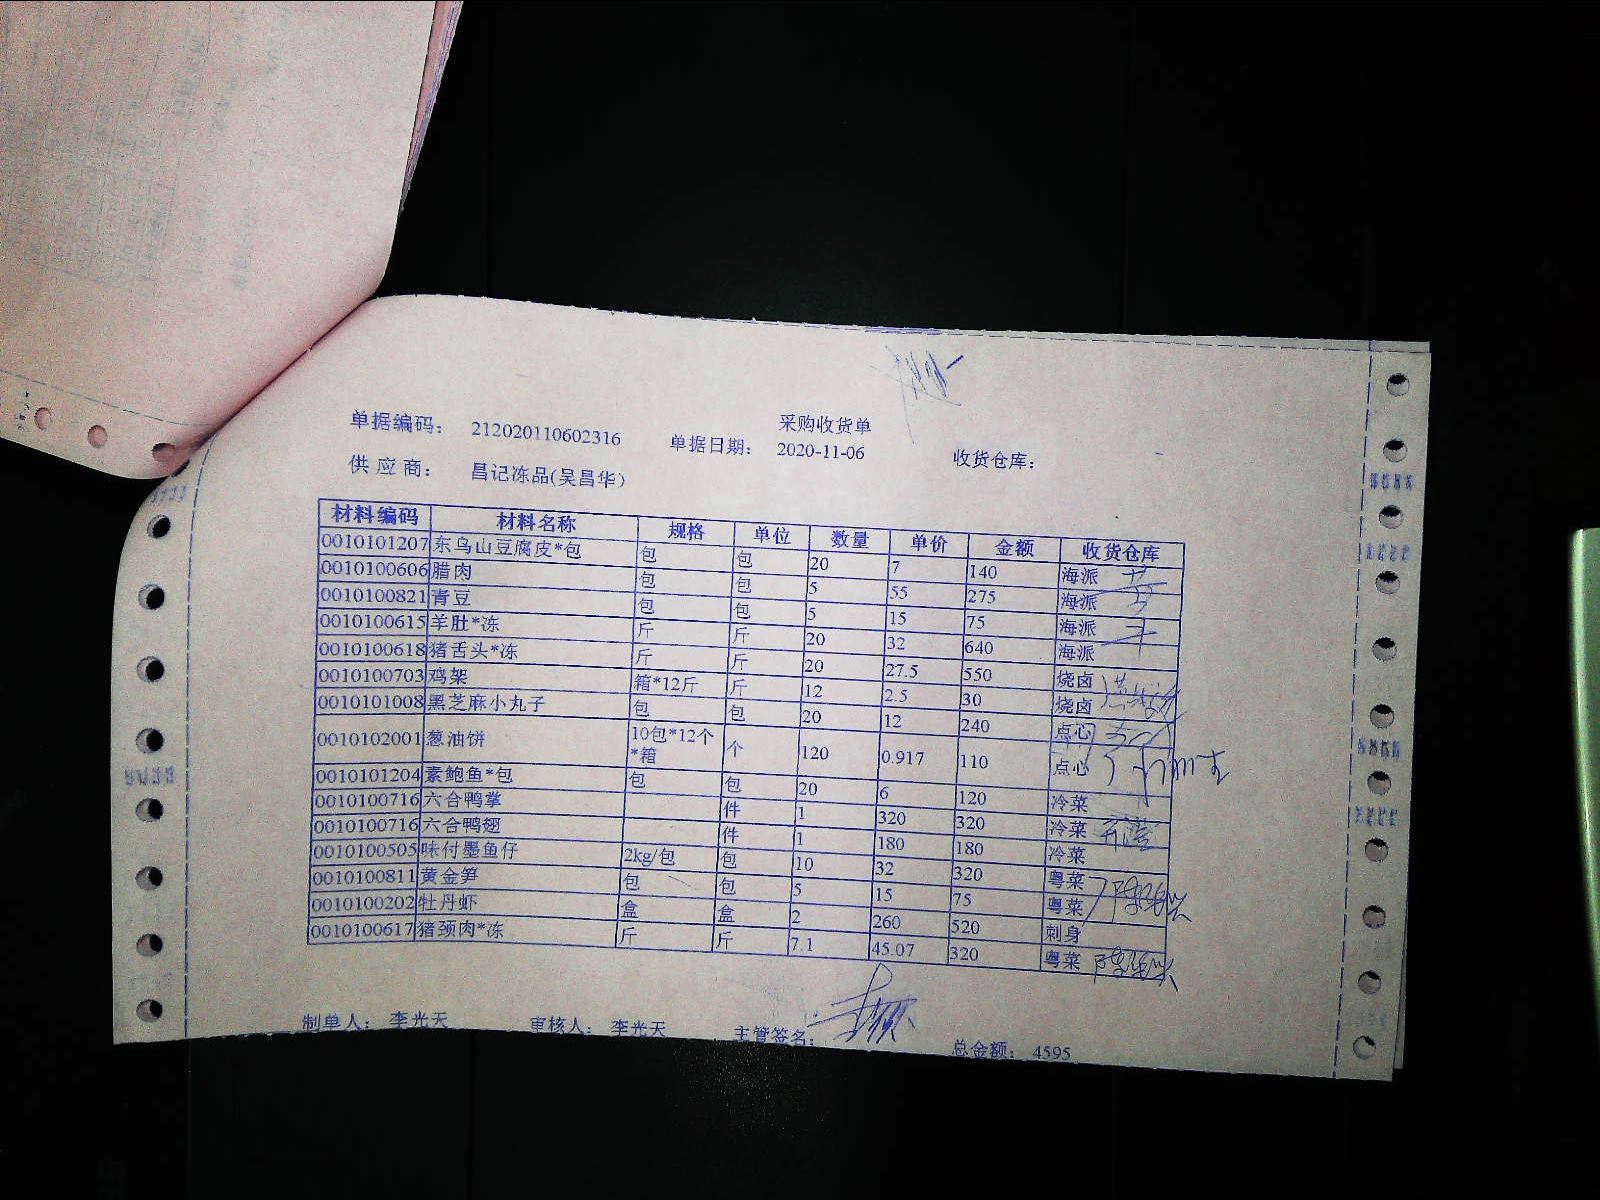 采购收货单
单据编码： 212020110602316 单据日期： 2020-11-06 收货仓库：
供 应 商： 昌记冻品(吴昌华)
材料编码 材料名称 规格 单位 数量 单价 金额 收货仓库
0010101207 东乌山豆腐皮*包 包 包 20 7 140 海派
0010100606 腊肉 包 包 5 55 275 海派
0010100821 青豆 包 包 5 15 75 海派
0010100615 羊肚*冻 斤 斤 20 32 640 海派
0010100618 猪舌头*冻 斤 斤 20 27.5 550 烧卤
0010100703 鸡架 箱*12斤 斤 12 2.5 30 烧卤
0010101008 黑芝麻小丸子 包 包 20 12 240 点心
0010102001 葱油饼 10包*12个*箱 个 120 0.917 110 点心
0010101204 素鲍鱼*包 包 包 20 6 120 冷菜
0010100716 六合鸭掌 件 1 320 320 冷菜
0010100716 六合鸭翅 件 1 180 180 冷菜
0010100505 味付墨鱼仔 2kg/包 包 10 32 320 粤菜
0010100811 黄金笋 包 包 5 15 75 粤菜
0010100202 牡丹虾 盒 盒 2 260 520 刺身
0010100617 猪颈肉*冻 斤 斤 7.1 45.07 320 粤菜
制单人： 李光天 审核人： 李光天 主管签名： 总金额： 4595